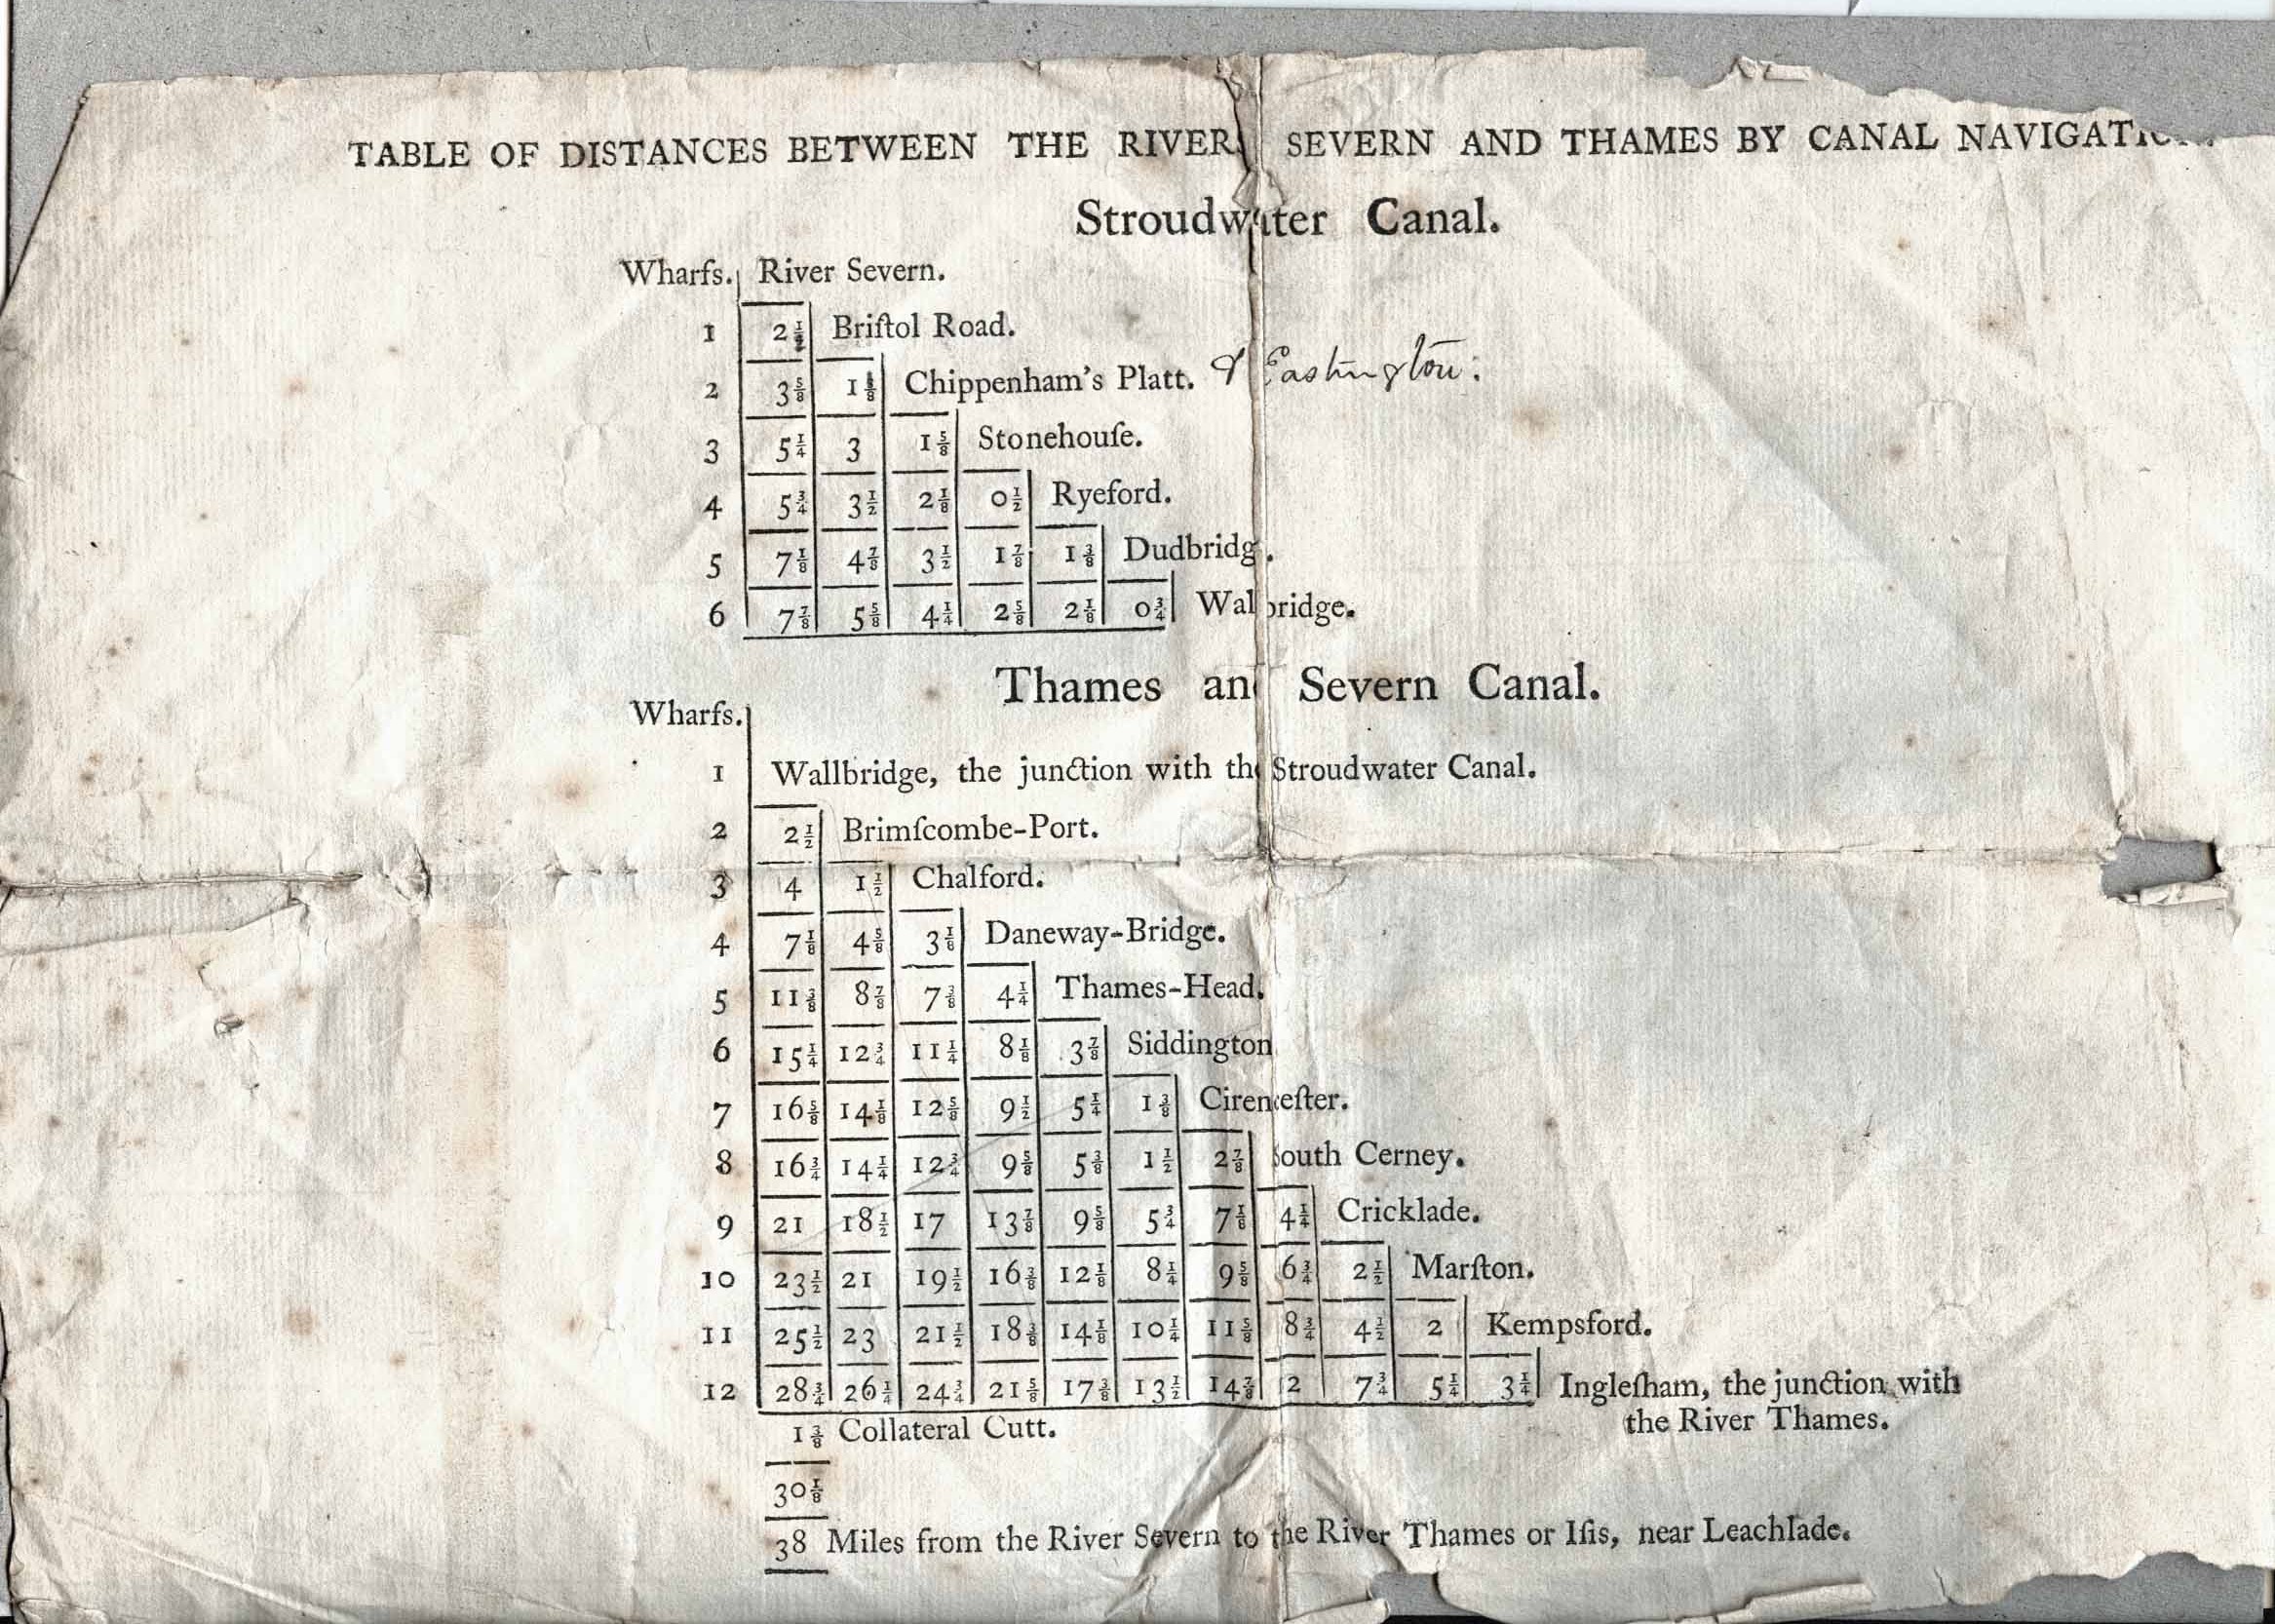 TABLE OF DISTANCES BETWEEN THE RIVERS SEVERN AND THAMES BY CANAL
Stroudwater Canal.
Wharfs. River Severn.
1 Briſtol Road.
2 3⅝ Chippenham's Platt. & Eastington:
3 5¼ 3 1⅝ Stonehouſe.
4 5¾ 3½ 2⅛ 0½ Ryeford.
5 7⅛ 4⅞ 3½ 1⅞ 1⅜ Dudbridg.
6 7⅞ 5⅝ 4¼ 2⅝ 2⅛ 0¾ Wallbridge.
Thames and Severn Canal.
Wharfs.
1 Wallbridge, the junction with the Stroudwater Canal.
2 2½ Brimſcombe-Port.
3 4 1½ Chalford.
4 7⅛ 4⅝ 3⅛ Daneway-Bridge.
5 11⅜ 8⅞ 7⅜ 4¼ Thames-Head.
6 15¼ 12¾ 11¼ 8⅛ 3⅞ Siddington
7 16⅝ 14⅛ 12⅝ 9½ 5¼ 1⅜ Cirenceſter.
8 16¾ 14¼ 12¾ 9⅝ 5⅜ 1½ 2⅞ South Cerney.
9 21 18½ 17 13⅞ 9⅝ 5¾ 7⅛ 4¼ Cricklade.
10 23½ 21 19½ 16⅜ 12⅛ 8¼ 9⅝ 6¾ 2½ Marſton.
11 25½ 23 21½ 18⅜ 14⅛ 10¼ 11⅝ 8¾ 4½ 2 Kempsford.
12 28¾ 26¼ 24¾ 21⅝ 17⅜ 13½ 14⅞ 7¾ 5¼ 3¼ Ingleſham, the junction with
the River Thames.
1⅜ Collateral Cutt.
30⅛
38 Miles from the River Severn to the River Thames or Iſis, near Leachlade.